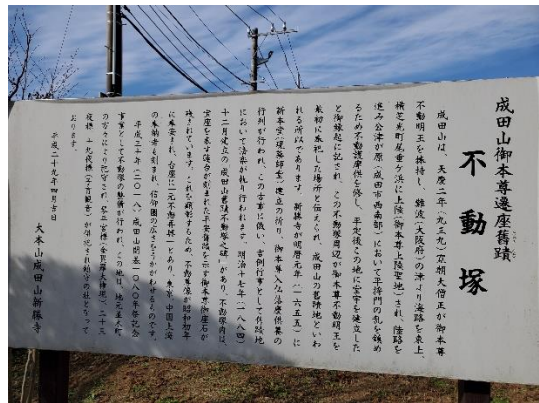 成田山御本尊遷座舊蹟
不動塚
成田山は、天慶二年(九三九)寛朝大僧正が御本尊
不動明王を捧持し、難波(大阪府)の津より海路を東上、
横芝光町尾垂ヶ浜に上陸(御本尊上陸聖地)され、陸路を
進み公津が原(成田市西南部)において平将門の乱を鎮め
るため不動護摩供を修し、平定後この地に堂宇を建立した
と御縁起に記され、この不動塚周辺が御本尊不動明王を
最初に奉祀した場所と伝えられ、成田山の舊蹟地といわ
れる所以であります。新勝寺が明暦元年(一六五五)に
新本堂(現薬師堂)建立の折り、御本尊入仏法慶供養の
行列が行われ、この古事に倣い、吉例行事として佳蹟地
において法楽が執り行われます。明治十七年(一八八四)
十二月建立の「成田山舊蹟不動塚之碑」があり、不動塚内は、
宝座を表す蓮台が刻まれた平安舊蹟を示す御本尊御座石が
残されています。これを顕彰するため、不動尊像が昭和初年
に奉安され、台座に「元不動再建」とあり、東京、中国上海
の奉納者も刻まれ、信仰圏の広さをうかがわせるものです。
平成三十年(二〇一八)成田山開基一〇八〇年祭記念
事業として不動塚の整備が行われ、この地は、地元並木町
の方々により祀守され、琴平宮様(金毘羅大権現)、二十三
夜様、十九夜様(子育観音)が併祀され鎮守の社となって
おります。
平成二十九年四月吉日
大本山成田山新勝寺